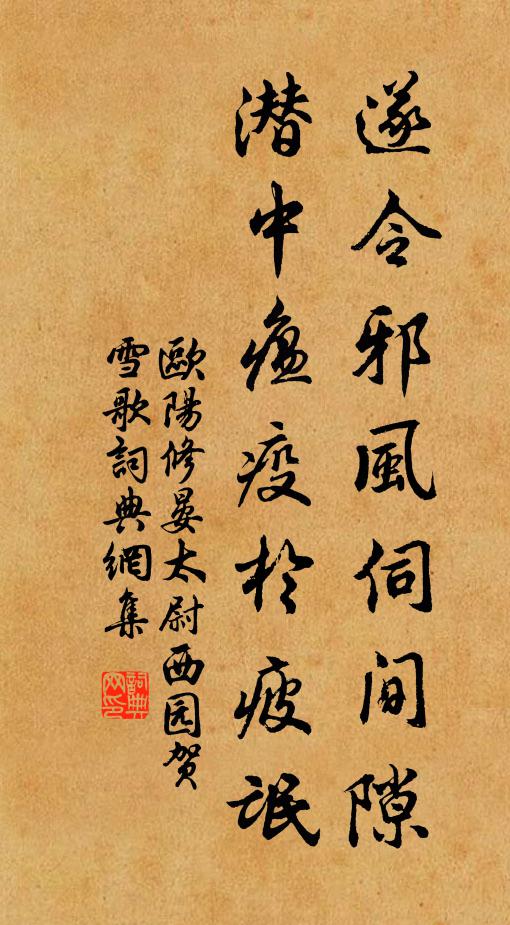 遂令邪風伺間隙
潜中瘟疫於疲氓
歐陽修晏太尉西园贺
雪歌詞典網集
詞典网印